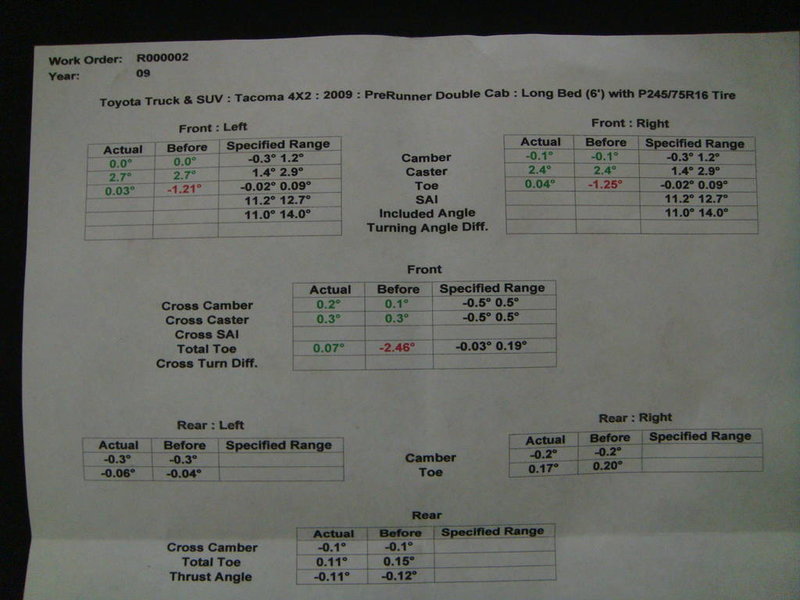 Work Order: R000002
Year: 09
Toyota Truck & SUV : Tacoma 4X2 : 2009 : PreRunner Double Cab : Long Bed (6') with P245/75R16 Tire
Front : Left Front : Right
Actual Before Specified Range Actual Before Specified Range
0.0° 0.0° -0.3° 1.2° Camber -0.1° -0.1° -0.3° 1.2°
2.7° 2.7° 1.4° 2.9° Caster 2.4° 2.4° 1.4° 2.9°
0.03° -1.21° -0.02° 0.09° Toe 0.04° -1.25° -0.02° 0.09°
11.2° 12.7° SAI 11.2° 12.7°
11.0° 14.0° Included Angle 11.0° 14.0°
Turning Angle Diff.
Front
Actual Before Specified Range
Cross Camber 0.2° 0.1° -0.5° 0.5°
Cross Caster 0.3° 0.3° -0.5° 0.5°
Cross SAI
Total Toe 0.07° -2.46° -0.03° 0.19°
Cross Turn Diff.
Rear : Left Rear : Right
Actual Before Specified Range Actual Before Specified Range
-0.3° -0.3° Camber -0.2° -0.2°
-0.06° -0.04° Toe 0.17° 0.20°
Rear
Actual Before Specified Range
Cross Camber -0.1° -0.1°
Total Toe 0.11° 0.15°
Thrust Angle -0.11° -0.12°